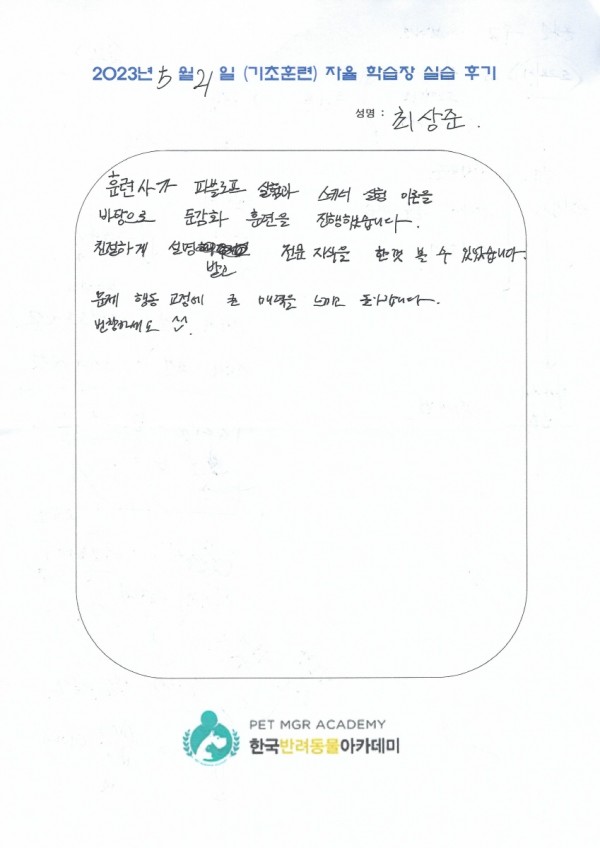 2023년 5월 21일 (기초훈련) 자율 학습장 실습 후기
성명 : 최상준.
훈련사가 파블로프 실험과 스키너 실험 이론을
바탕으로 둔감화 훈련을 진행했습니다.
친절하게 설명 받고 전문 지식을 한껏 볼 수 있었습니다.
문제 행동 교정에 큰 매력을 느끼고 돌아갑니다.
번창하세요 ^^.
PET MGR ACADEMY
한국반려동물아카데미